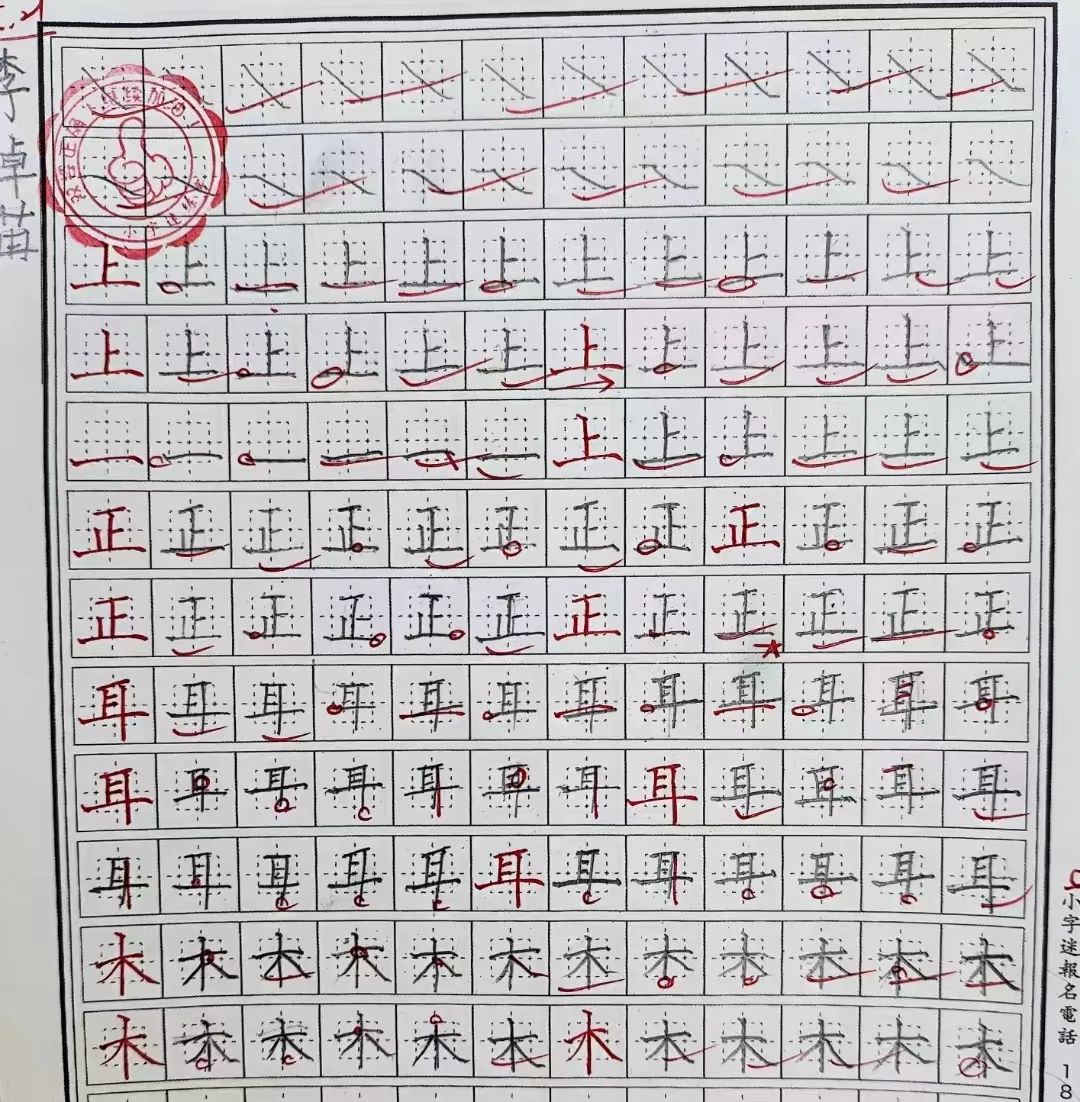 李卓苗
正确！继续加油！
小字迷
上上上上上上上上上上上上
上上上上上上上上上上上上
一一一一一一上上上上上上
正正正正正正正正正正正正
正正正正正正正正正正正正
耳耳耳耳耳耳耳耳耳耳耳耳
耳耳耳耳耳耳耳耳耳耳耳耳
耳耳耳耳耳耳耳耳耳耳耳耳
木木木木木木木木木木木木
木木木木木木木木木木木木
小字迷報名電話 18